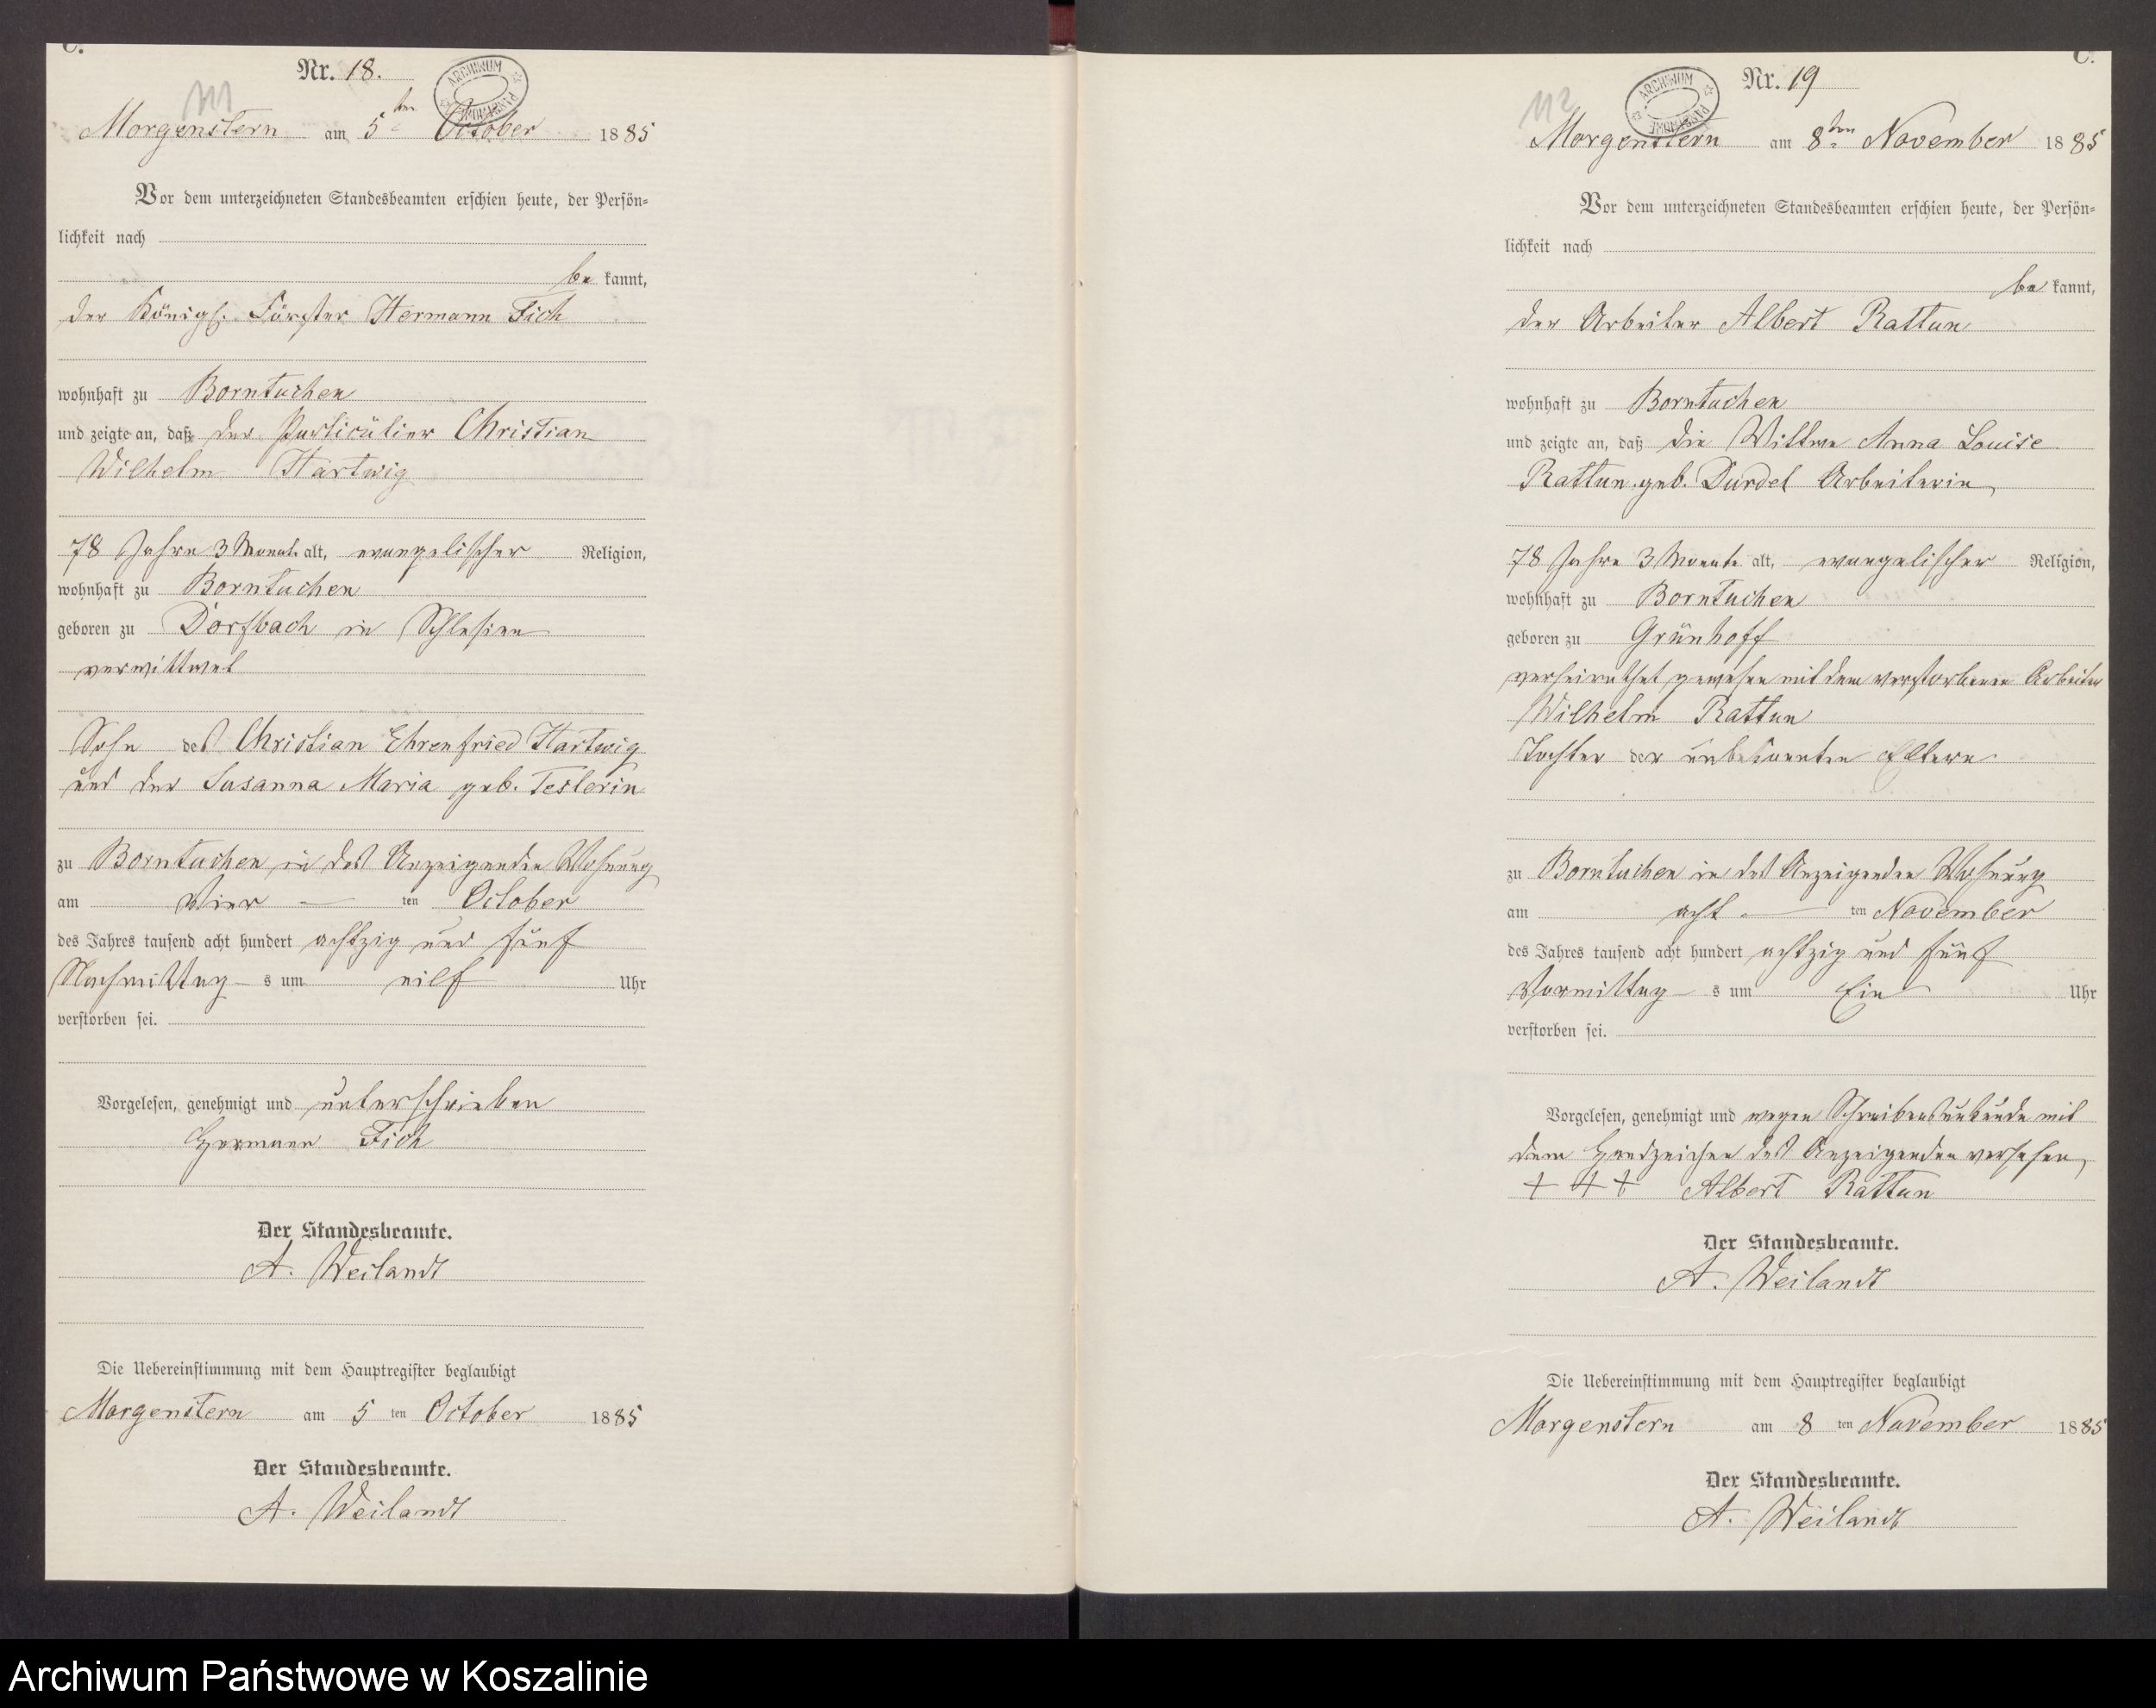 C.
Nr. 18.
111
ARCHIWUM PAŃSTWOWE
Morgenstern am 5ten October 1885
Vor dem unterzeichneten Standesbeamten erschien heute, der Persön-
lichkeit nach
be kannt,
der Königl. Förster Hermann Fich
wohnhaft zu Borntuchen
und zeigte an, daß der Particulier Christian
Wilhelm Hartwig
78 Jahre 3 Monate alt, evangelischer Religion,
wohnhaft zu Borntuchen
geboren zu Dorfbach in Schlesien
verwittwet
Sohn des Christian Ehrenfried Hartwig
und der Susanna Maria geb. Teslerin
zu Borntuchen in des Anzeigenden Wohnung
am Vier ten October
des Jahres tausend acht hundert achtzig und fünf
Nachmittag s um eilf Uhr
verstorben sei.
Vorgelesen, genehmigt und unterschrieben
Hermann Fich
Der Standesbeamte.
A. Weilandt
Die Uebereinstimmung mit dem Hauptregister beglaubigt
Morgenstern am 5 ten October 1885
Der Standesbeamte.
A. Weilandt
C.
Nr. 19
112
ARCHIWUM PAŃSTWOWE
Morgenstern am 8ten November 1885
Vor dem unterzeichneten Standesbeamten erschien heute, der Persön-
lichkeit nach
be kannt,
der Arbeiter Albert Rattun
wohnhaft zu Borntuchen
und zeigte an, daß die Wittwe Anna Louise
Rattun geb. Durdel Arbeiterin
78 Jahre 3 Monate alt, evangelischer Religion,
wohnhaft zu Borntuchen
geboren zu Grünhoff
verheirathet gewesen mit dem verstorbenen Arbeiter
Wilhelm Rattun
Tochter der unbekannten Eltern
zu Borntuchen in des Anzeigenden Wohnung
am acht ten November
des Jahres tausend acht hundert achtzig und fünf
Vormittag s um Ein Uhr
verstorben sei.
Vorgelesen, genehmigt und wegen Schreibensunkunde mit
dem Handzeichen des Anzeigenden versehen,
+ + + Albert Rattun
Der Standesbeamte.
A. Weilandt
Die Uebereinstimmung mit dem Hauptregister beglaubigt
Morgenstern am 8 ten November 1885
Der Standesbeamte.
A. Weilandt
Archiwum Państwowe w Koszalinie